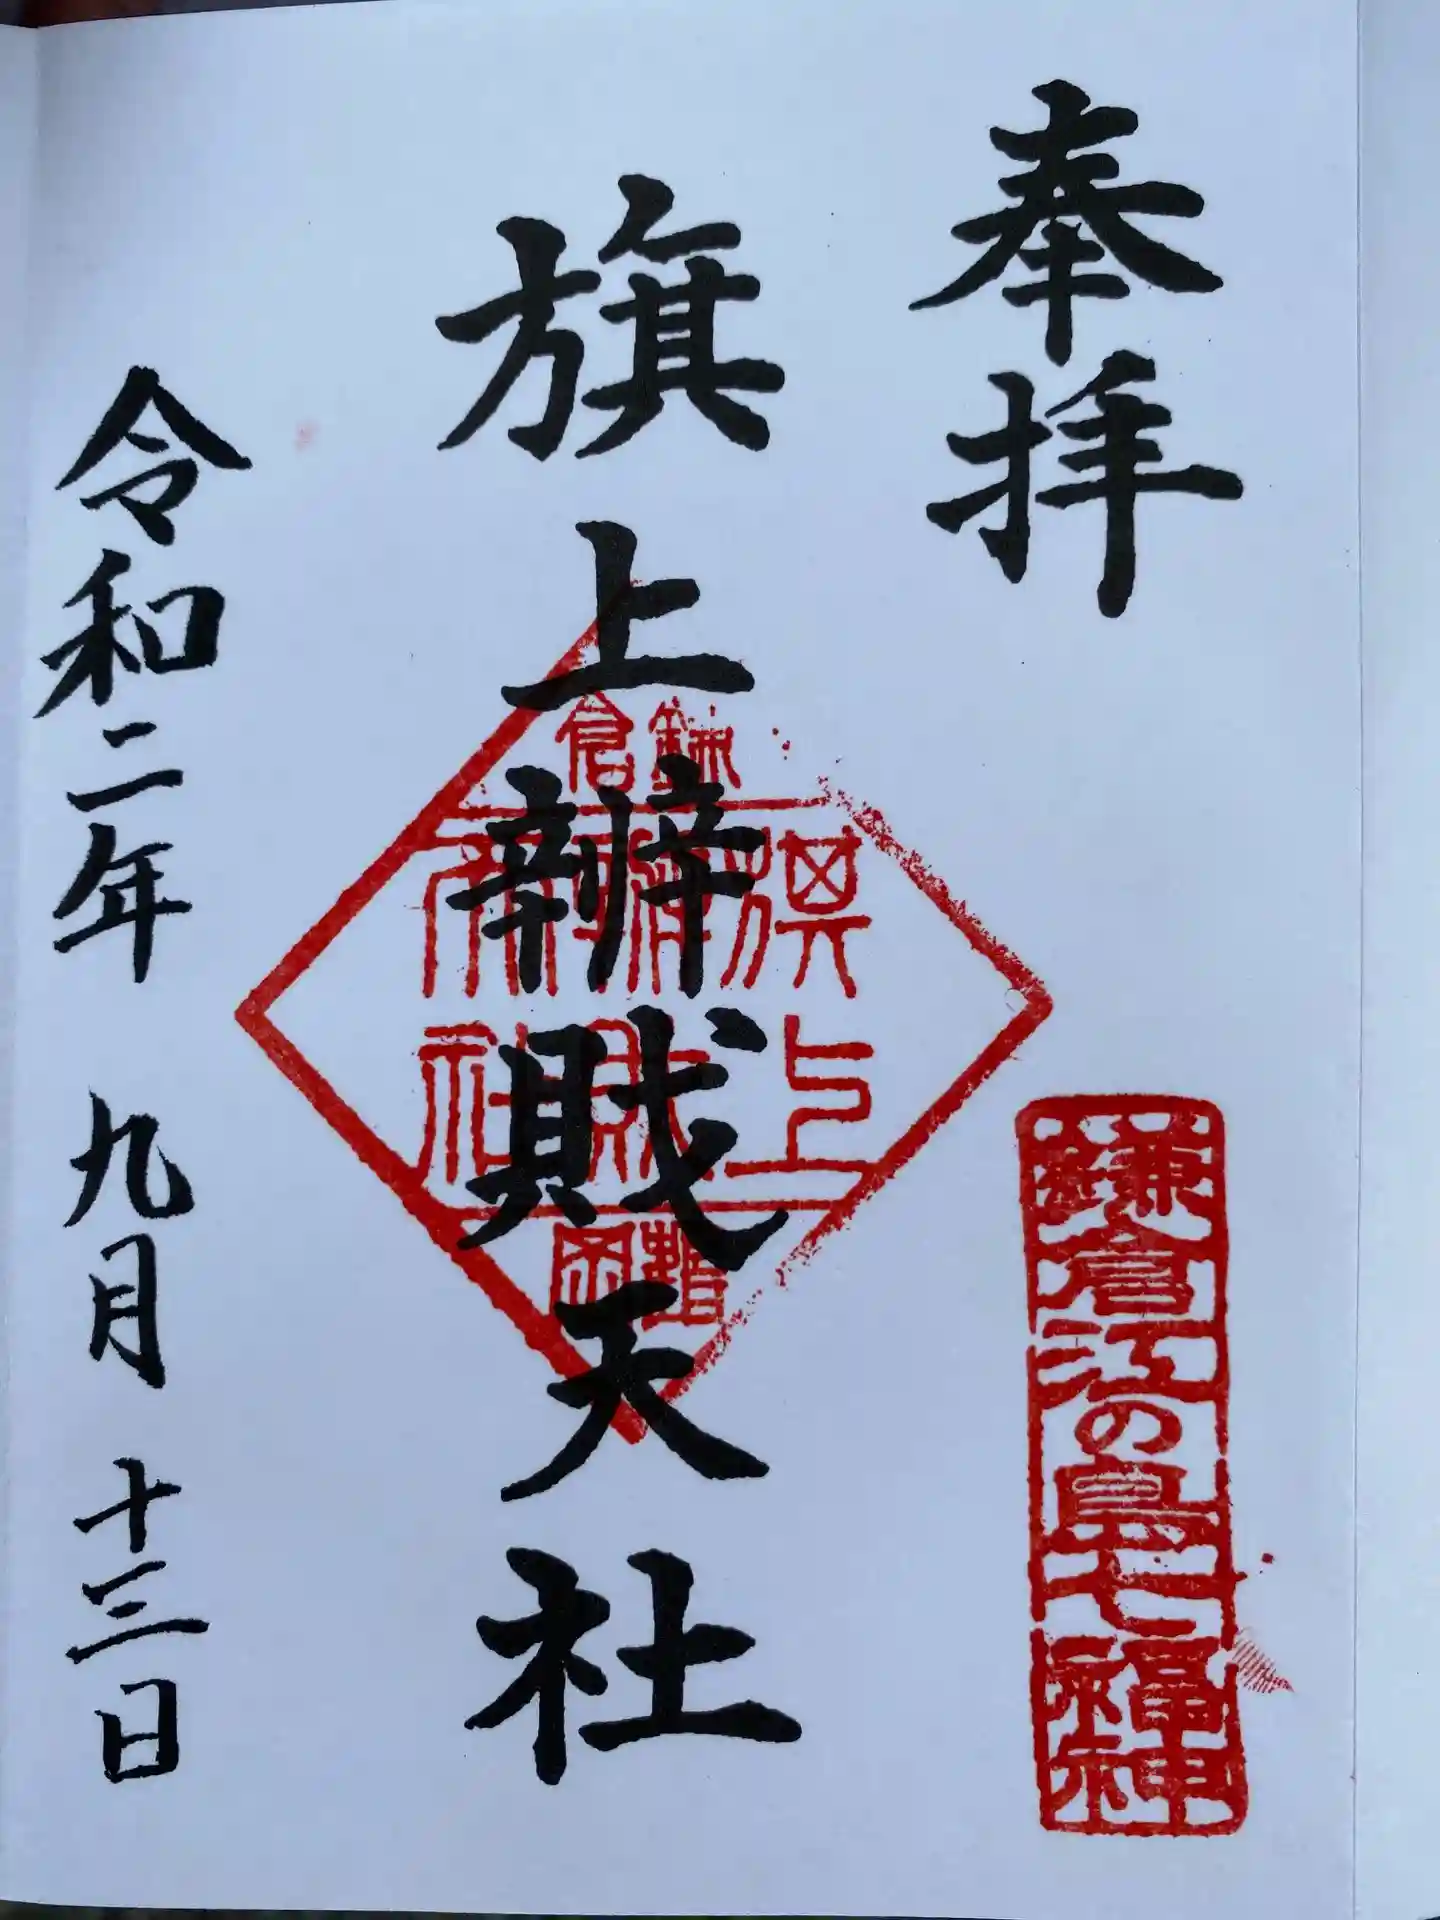 奉拝
鎌倉江の島七福神
旗上辨財天社
鎌倉
旗上
鶴岡
令和二年 九月 十三日